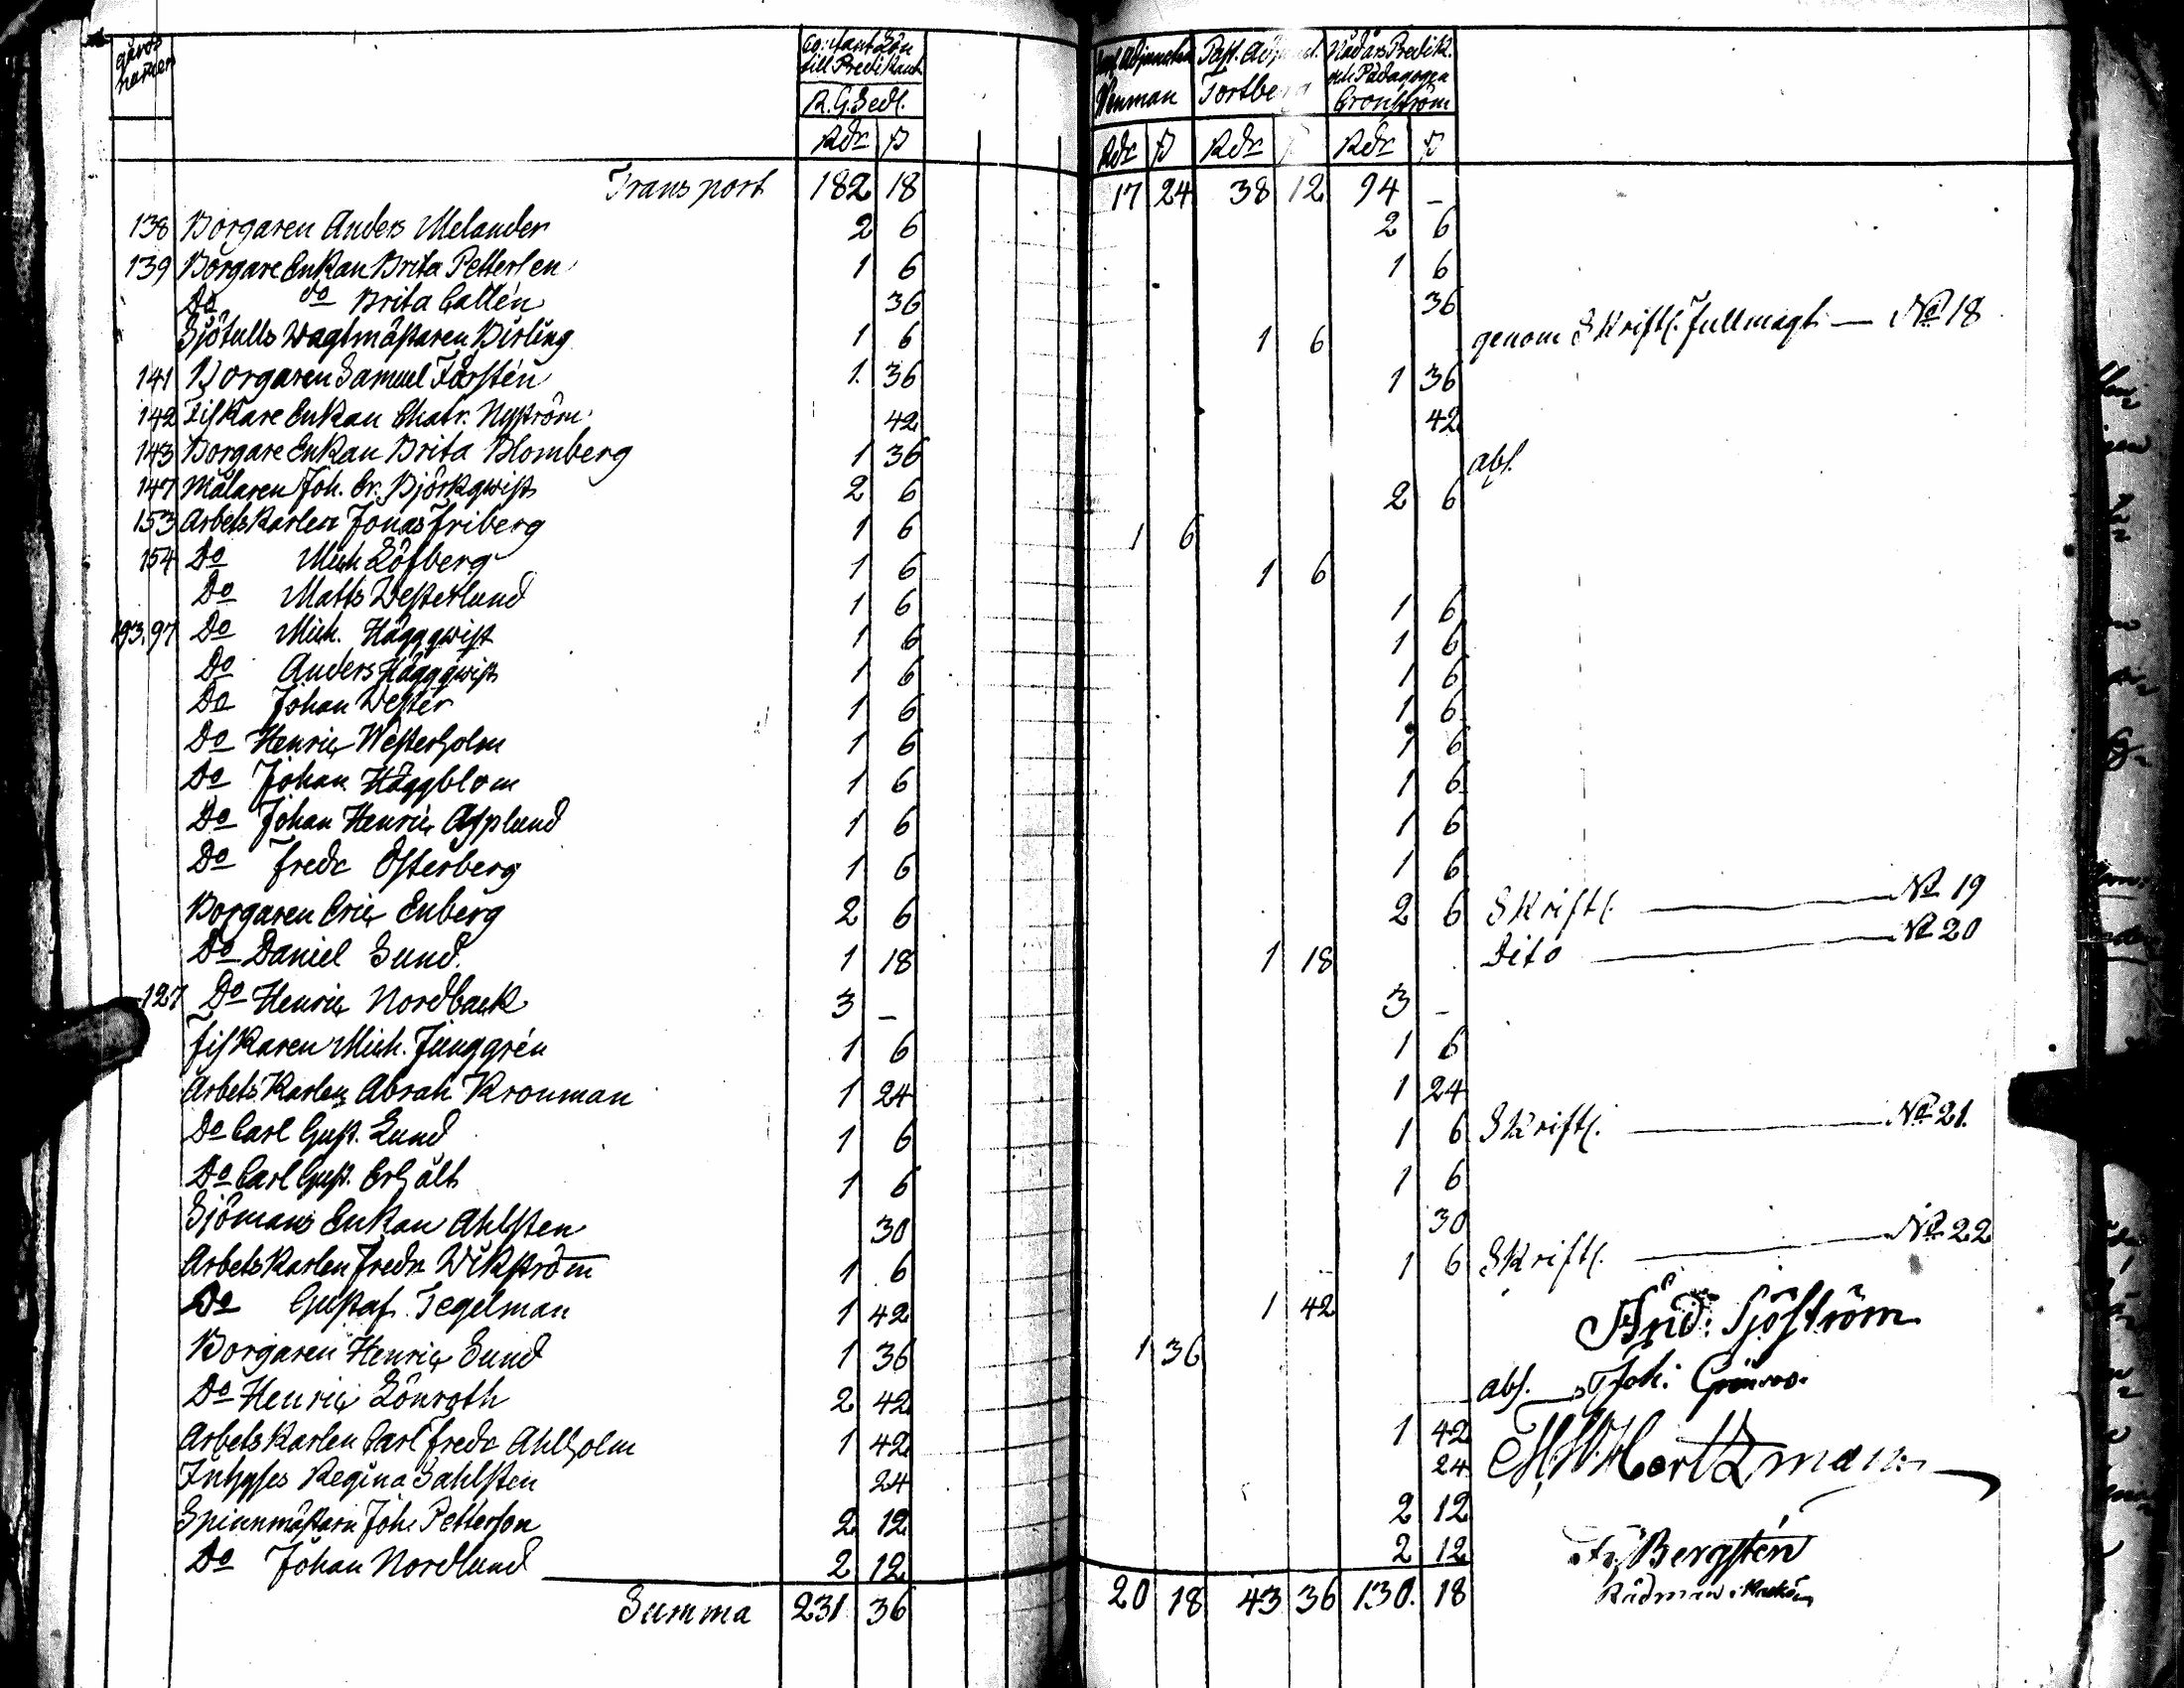 gårds namen Contant Lön till Predikant. R. G. Sedl. Rdr ß
Past. Adjuncten Wenman Rdr ß Past. Adjunct. Tortberg Rdr ß Nådårs Predik. och Pädagogen Cronström Rdr ß
Transport 182 18 17 24 38 12 94 –
138 Borgaren Anders Melander 2 6 2 6
139 Borgare Enkan Brita Petterlen 1 6 1 6
Do do Brita Callén 36 36
Sjötulls Wagtmästaren Birling 1 6 1 6 genom Skriftl. Fullmagt — No 18
141 Borgaren Samuel Forstén 1 36 1 36
142 Fiskare Enkan Chatr. Nyström 42 42
143 Borgare Enkan Brita Blomberg 1 36 abs.
147 Målaren Joh. Er. Björkqwist 2 6 2 6
153 Arbetskarlen Jonas Friberg 1 6 1 6
154 Do Mich Löfberg 1 6 1 6
Do Matts Westerlund 1 6 1 6
193.97 Do Mich. Häggqwist 1 6 1 6
Do Anders Häggqwist 1 6 1 6
Do Johan Wester 1 6 1 6
Do Henric Westerholm 1 6 1 6
Do Johan Häggblom 1 6 1 6
Do Johan Henric Asplund 1 6 1 6
Do Fredr Österberg 1 6 1 6
Borgaren Eric Enberg 2 6 2 6 Skriftl. — No 19
Do Daniel Sund. 1 18 1 18 Dito — No 20
127 Do Henric Nordback 3 – 3 –
Fiskaren Mich. Junggrén 1 6 1 6
Arbets Karlen Abrah Kronman 1 24 1 24
Do Carl Gust. Lund 1 6 1 6 Skriftl. — No 21.
Do Carl Gust. Erhalt 1 6 1 6
Sjömans Enkan Ahlsten 30 30
Arbetskarlen Fredr Wikström 1 6 1 6 Skriftl. — No 22
Do Gustaf Tegelman 1 42 1 42 And: Sjöström
Borgaren Henric Sund 1 36 1 36
Do Henric Lönroth 2 42 abs. Joh: Grönroos
Arbetskarlen Carl Fredr Ahlholm 1 42 1 42
Inhyses Regina Sahlsten 24 24 Hertzman
Spinnmästarn Joh: Petterson 2 12 2 12
Do Johan Nordlund 2 12 2 12 Bergstén
Summa 231 36 20 18 43 36 130. 18 Rådman